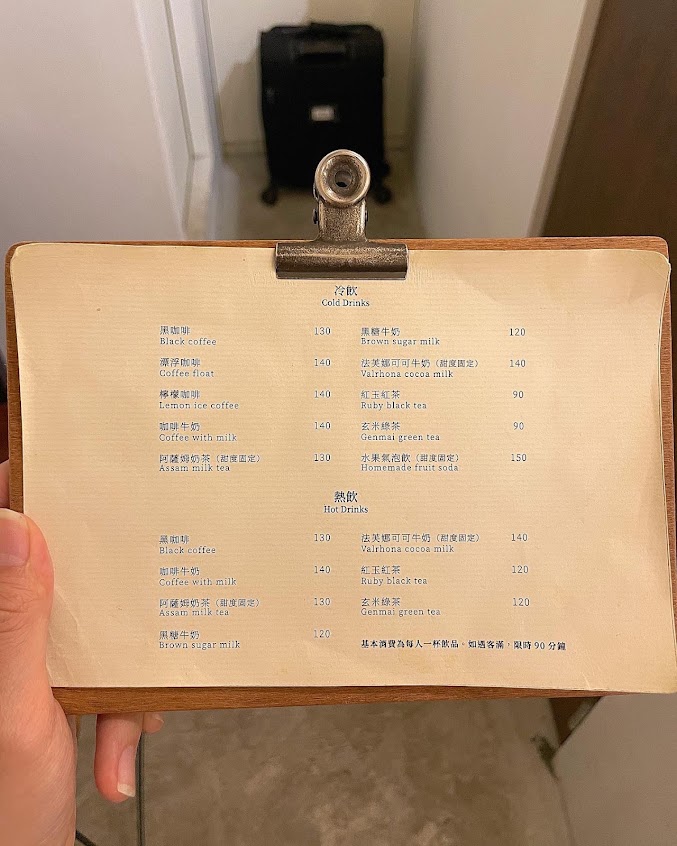 冷飲
Cold Drinks
黑咖啡 130
Black coffee
漂浮咖啡 140
Coffee float
檸檬咖啡 140
Lemon ice coffee
咖啡牛奶 140
Coffee with milk
阿薩姆奶茶（甜度固定） 130
Assam milk tea
黑糖牛奶 120
Brown sugar milk
法芙娜可可牛奶（甜度固定） 140
Valrhona cocoa milk
紅玉紅茶 90
Ruby black tea
玄米綠茶 90
Genmai green tea
水果氣泡飲（甜度固定） 150
Homemade fruit soda
熱飲
Hot Drinks
黑咖啡 130
Black coffee
咖啡牛奶 140
Coffee with milk
阿薩姆奶茶（甜度固定） 130
Assam milk tea
黑糖牛奶 120
Brown sugar milk
法芙娜可可牛奶（甜度固定） 140
Valrhona cocoa milk
紅玉紅茶 120
Ruby black tea
玄米綠茶 120
Genmai green tea
基本消費為每人一杯飲品。如遇客滿，限時 90 分鐘